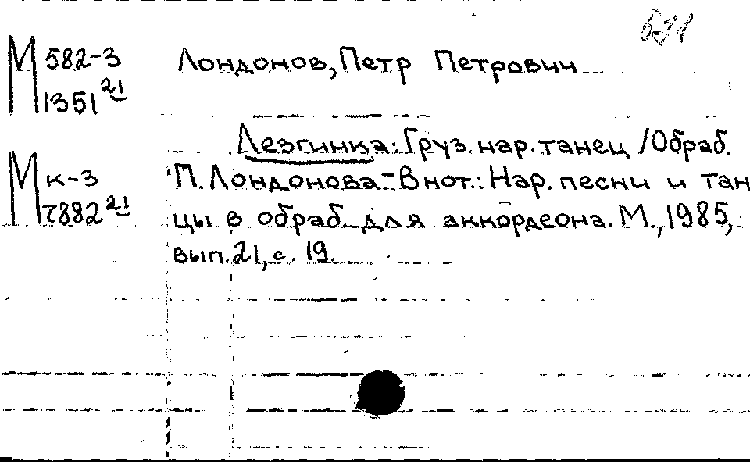 М 582-3
1351 21
Лондонов, Петр Петрович
Лезгинка: Груз. нар. танец / Обраб.
М к-3
7882 21
П. Лондонова.- В нот.: Нар. песни и тан
цы в обраб. для аккордеона. М., 1985,
вып. 21, с. 19.